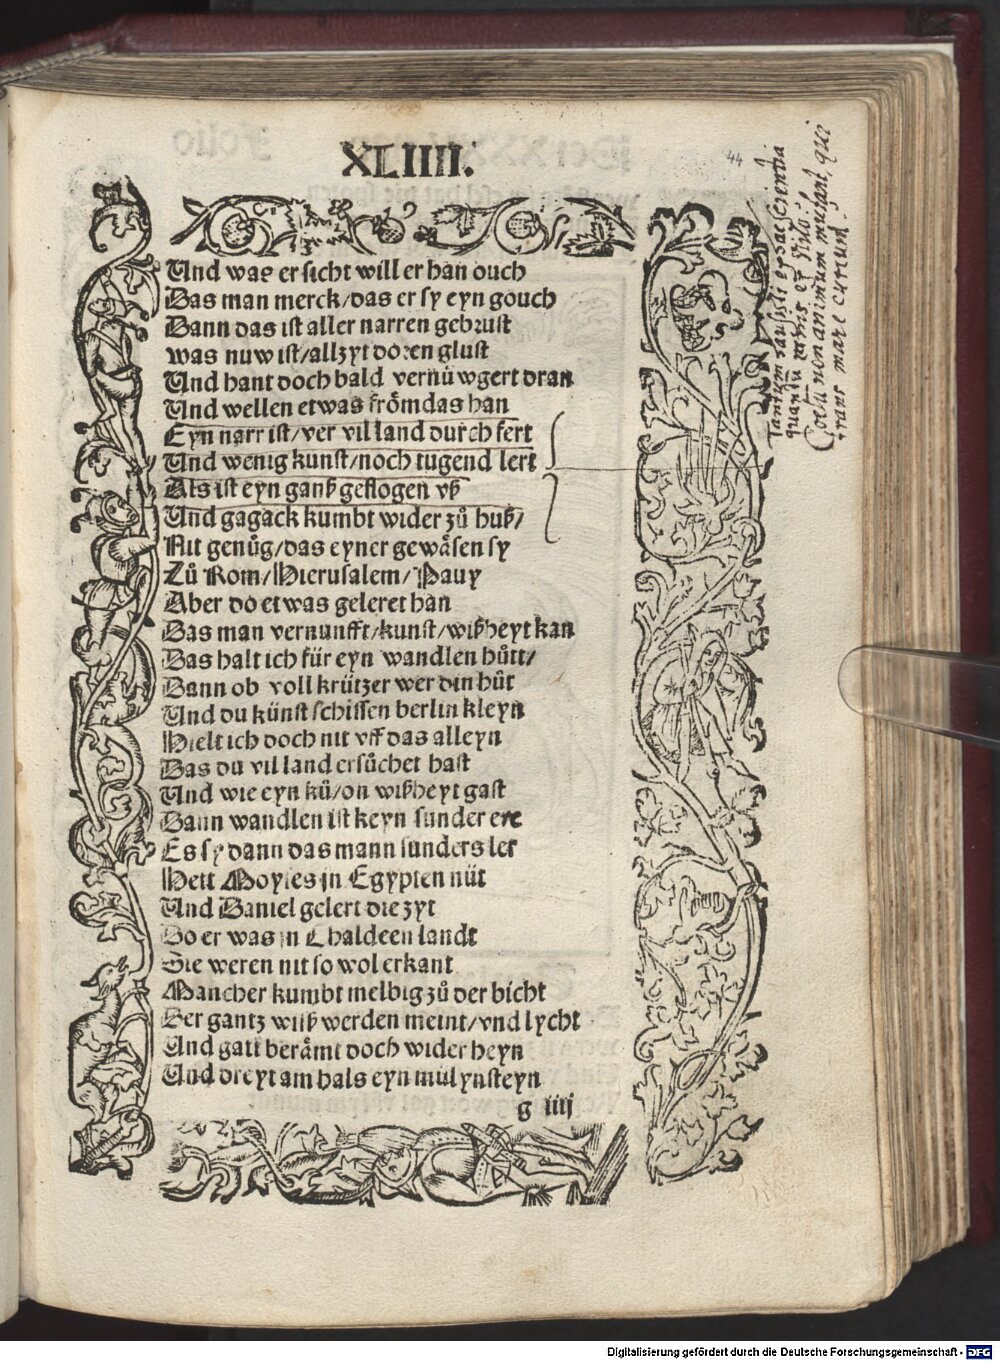 XLIIII.
44
Und was er sicht will er han ouch
Das man merck/das er sy eyn gouch
Dann das ist aller narren gebrust
was nuw ist/allzyt doren glust
Und hant doch bald vernüwgert dran
Und wellen etwas frömdas han
Eyn narr ist/ver vil land durch fert
Und wenig kunst/noch tugend lert
Als ist eyn ganß geflogen vß
Und gagack kumbt wider zů huß/
Nit genůg/das eyner gewäsen sy
Zů Rom/Hierusalem/Pauy
Aber do etwas geleret han
Das man vernunfft/kunst/wißheyt kan
Das halt ich für eyn wandlen hůtt/
Dann ob voll krützer wer din hůt
Und du künst schissen berlin kleyn
Hielt ich doch nit vff das alleyn
Das du vil land ersůchet hast
Und wie eyn ků/on wißheyt gast
Dann wandlen ist keyn sunder ere
Es sy dann das mann sunders ler
Hett Moyses in Egypten nüt
Und Daniel gelert die zyt
Do er was in Chaldeen landt
Sie weren nit so wol erkant
Mancher kumbt melbig zů der bicht
Der gantz wiß werden meint/vnd lycht
Und gatt berämt doch wider heyn
Und dreyt am hals eyn mülynsteyn
g iiij
Coelum non animum mutant, qui
trans mare currunt.
Digitalisierung gefördert durch die Deutsche Forschungsgemeinschaft - DFG